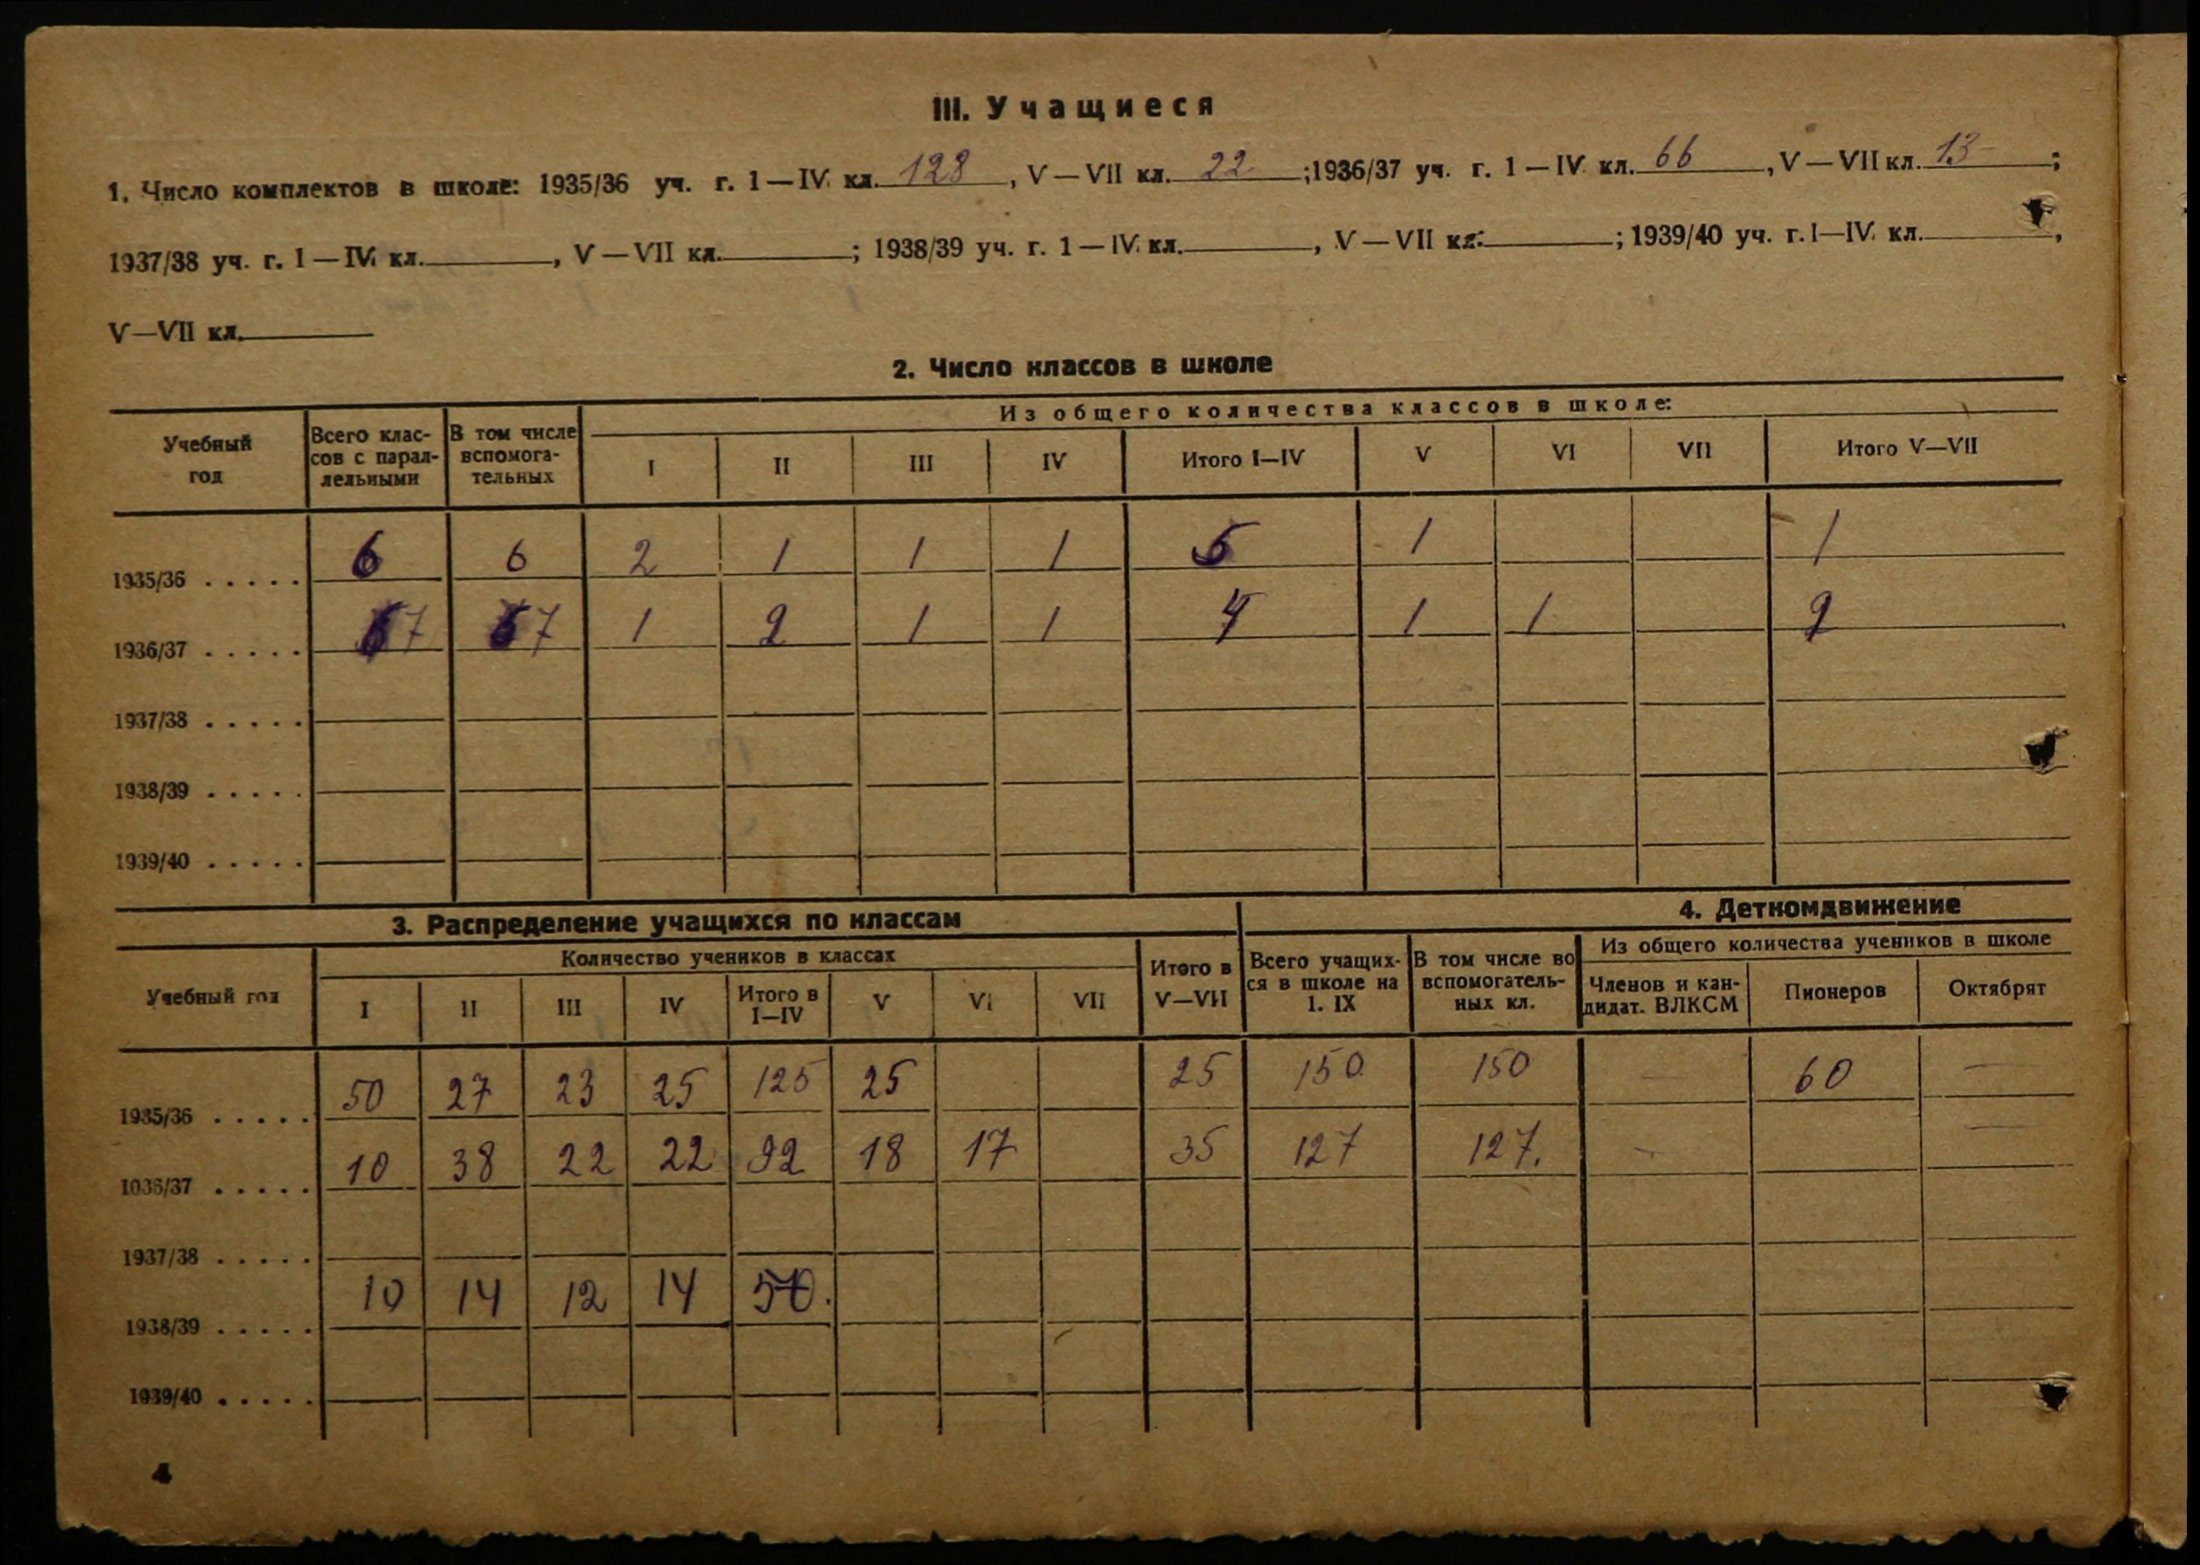 III. Учащиеся
1. Число комплектов в школе: 1935/36 уч. г. 1—IV кл. 128, V—VII кл. 22; 1936/37 уч. г. 1—IV кл. 66, V—VII кл. 13;
1937/38 уч. г. 1—IV кл. , V—VII кл. ; 1938/39 уч. г. 1—IV кл. , V—VII кл. ; 1939/40 уч. г. I—IV кл. ,
V—VII кл.
2. Число классов в школе
Учебный год | Всего классов с параллельными | В том числе вспомогательных | Из общего количества классов в школе:
I | II | III | IV | Итого I—IV | V | VI | VII | Итого V—VII
1935/36 ..... 6 6 2 1 1 1 5 1 1
1936/37 ..... 7 7 1 2 1 1 1 1 2
1937/38 .....
1938/39 .....
1939/40 .....
3. Распределение учащихся по классам
4. Деткомдвижение
Учебный год | Количество учеников в классах | Итого в V—VII | Всего учащихся в школе на 1. IX | В том числе во вспомогательных кл. | Из общего количества учеников в школе
I | II | III | IV | Итого в I—IV | V | VI | VII | Членов и кандидат. ВЛКСМ | Пионеров | Октябрят
1935/36 ..... 50 27 23 25 125 25 25 150 150 — 60 —
1036/37 ..... 10 38 22 22 92 18 17 35 127 127. — —
1937/38 .....
1938/39 ..... 10 14 12 14 50.
1939/40 .....
4